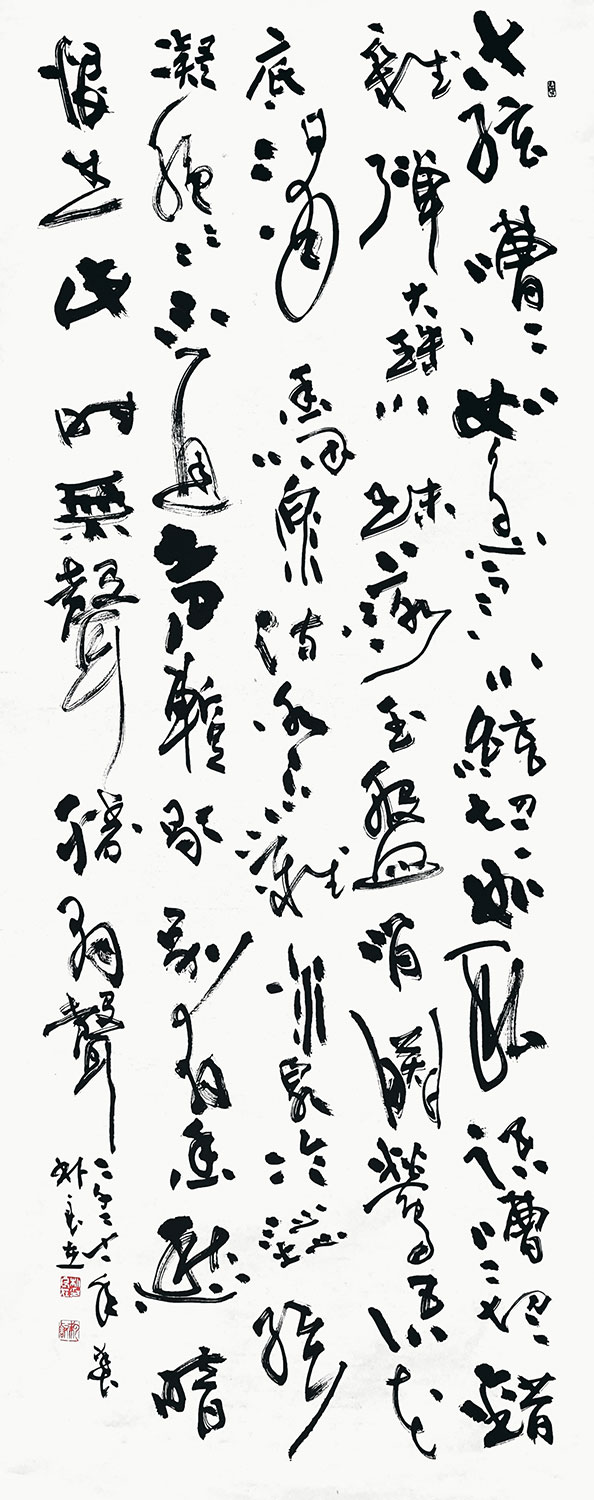 大弦嘈嘈如急雨小絃切切如私語嘈嘈切切錯
雜彈大珠小珠落玉盤間關鶯語花
底滑幽咽泉流冰下難冰泉冷澀絃
凝絕凝絕不通聲暫歇別有幽愁暗
恨生此時無聲勝有聲